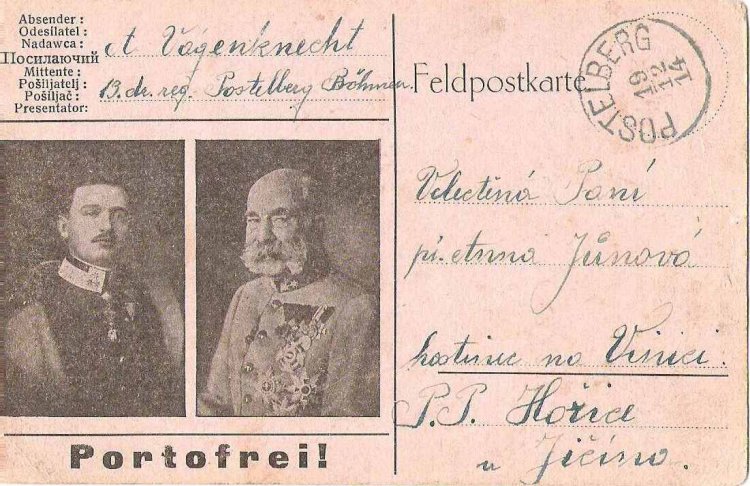 Absender :
Odesilatel :
Nadawca :
Посилаючий
Mittente :
Pošiljatelj :
Pošiljač :
Presentator:
A Vagenknecht
13. dr. reg. Postelberg Böhmen.
Feldpostkarte
POSTELBERG
19 12 14
Velectěná Paní
pí. Anna Jůnová
hostinec na Vinici.
P.P. Hořice
u Jičína.
Portofrei!